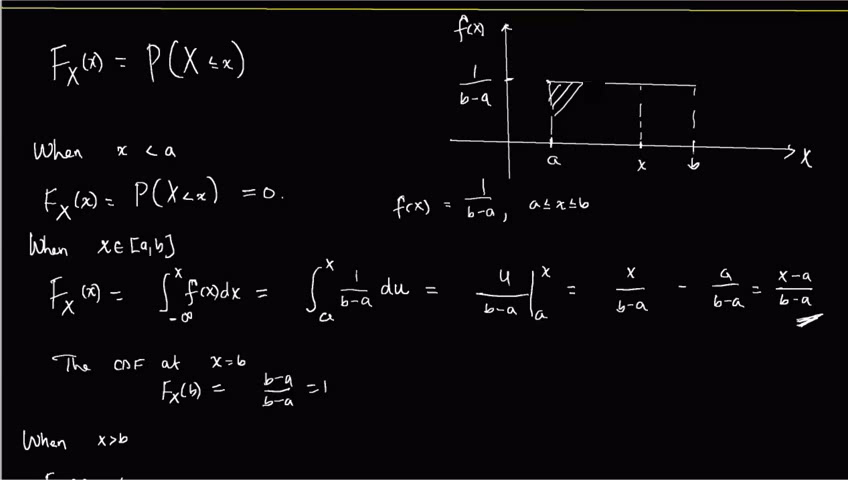 F_X(x) = P(X ≤ x)
f(x)
1/(b-a)
a x b X
When x < a
F_X(x) = P(X<x) = 0.
f(x) = 1/(b-a), a ≤ x ≤ b
When x ∈ [a,b]
F_X(x) = ∫_{-∞}^{x} f(x)dx = ∫_{a}^{x} 1/(b-a) du = u/(b-a) |_{a}^{x} = x/(b-a) - a/(b-a) = (x-a)/(b-a)
The CDF at x=b
F_X(b) = (b-a)/(b-a) = 1
When x>b